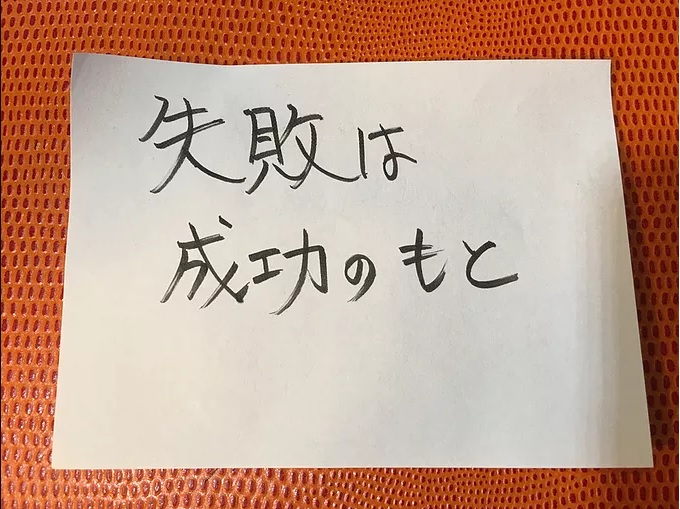 失敗は
成功のもと